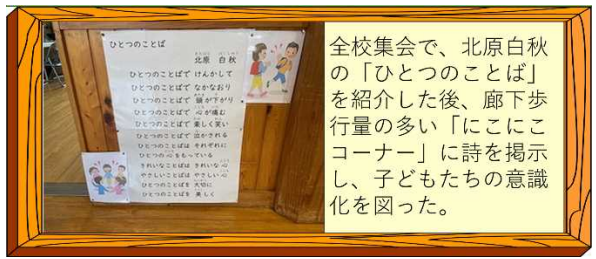 ひとつのことば
北原 白秋
ひとつのことばで けんかして
ひとつのことばで なかなおり
ひとつのことばで 頭が下がり
ひとつのことばで 心が痛む
ひとつのことばで 楽しく笑い
ひとつのことばで 泣かされる
ひとつのことばは それぞれに
ひとつの心をもっている
きれいなことばは きれいな心
やさしいことばは やさしい心
ひとつのことばを 大切に
ひとつのことばを 美しく
全校集会で、北原白秋
の「ひとつのことば」
を紹介した後、廊下歩
行量の多い「にこにこ
コーナー」に詩を掲示
し、子どもたちの意識
化を図った。